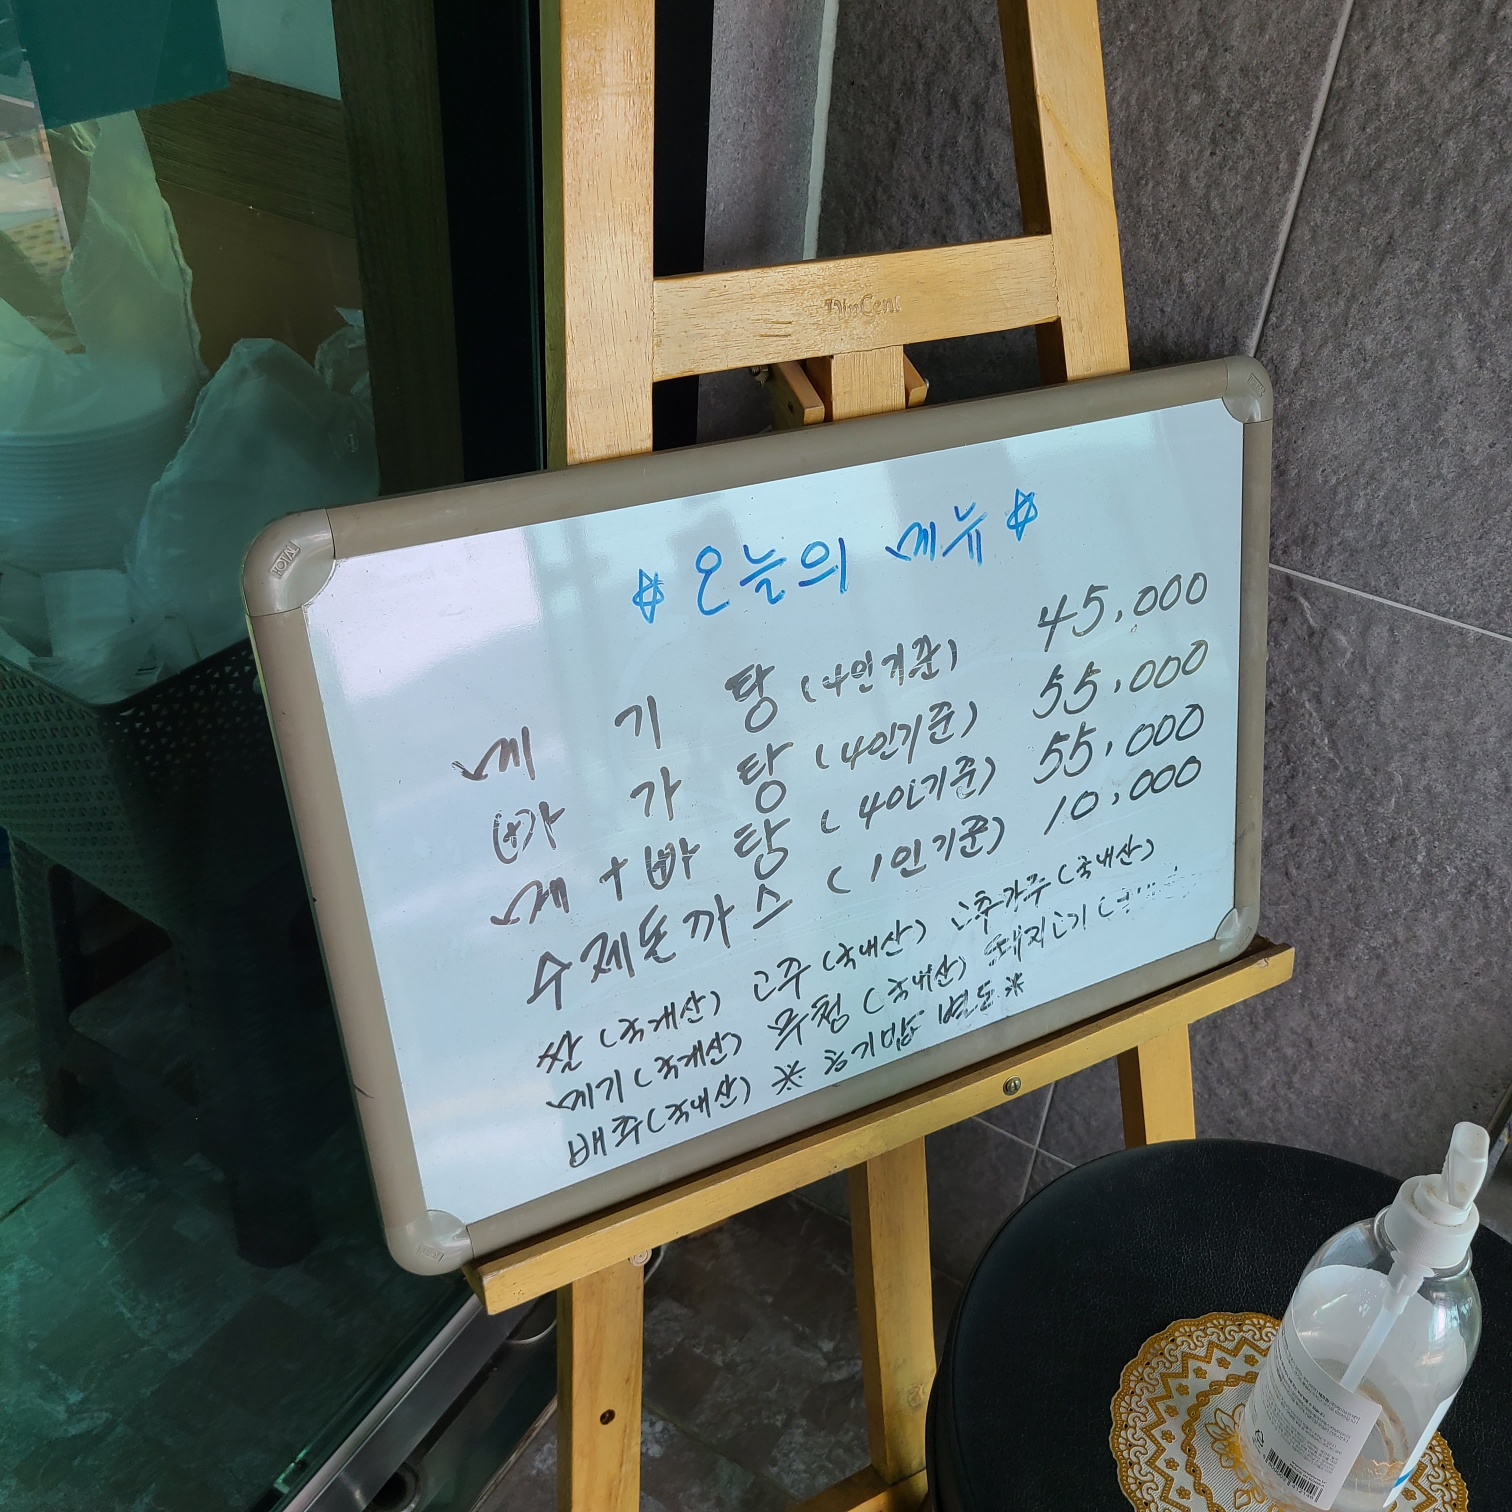 VinCent
☆ 오늘의 메뉴 ☆
메 기 탕 (4인기준) 45,000
빠 가 탕 (4인기준) 55,000
메 + 빠 탕 (4인기준) 55,000
수제돈까스 (1인기준) 10,000
쌀 (국내산) 고추 (국내산) 고추가루 (국내산)
메기 (국내산) 무청 (국내산) 돼지고기
배추 (국내산) ※ 공기밥 별도 ※